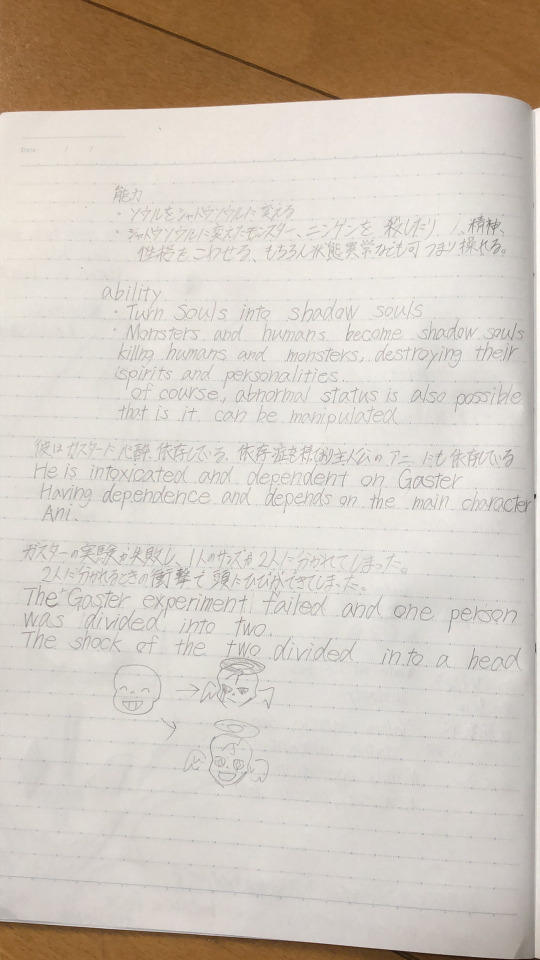 能力
・ソウルをシャドウソウルに変える
・シャドウソウルに変えたモンスター、ニンゲンを殺したり、精神、
性格をこわせる、もちろん状態異常なども可つまり操れる。
ability
・Turn Souls into shadow souls
・Monsters and humans become shadow souls
killng humans and monsters, destroying their
spirits and personalities.
Of course, abnormal status is also possible
that is it can be manipulated
彼はガスターに心酔、依存している、依存症を持ち主人公のアニーにも依存している
He is intoxicated and dependent on Gaster
Having dependence and depends on the main character
Ani.
ガスターの実験が失敗し、1人のサンズが2人に分かれてしまった。
2人に分かれるときの衝撃で頭にひびができてしまった。
The Gaster experiment failed and one person
was divided into two.
The shock of the two divided into a head